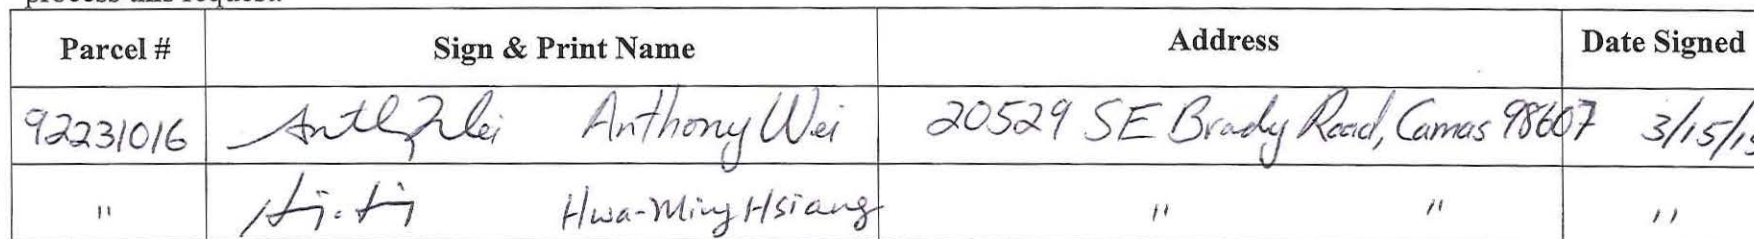 Parcel # Sign & Print Name Address Date Signed
92231016 Anthony Wei 20529 SE Brady Road, Camas 98607 3/15/1
" Hwa-Ming Hsiang " " "